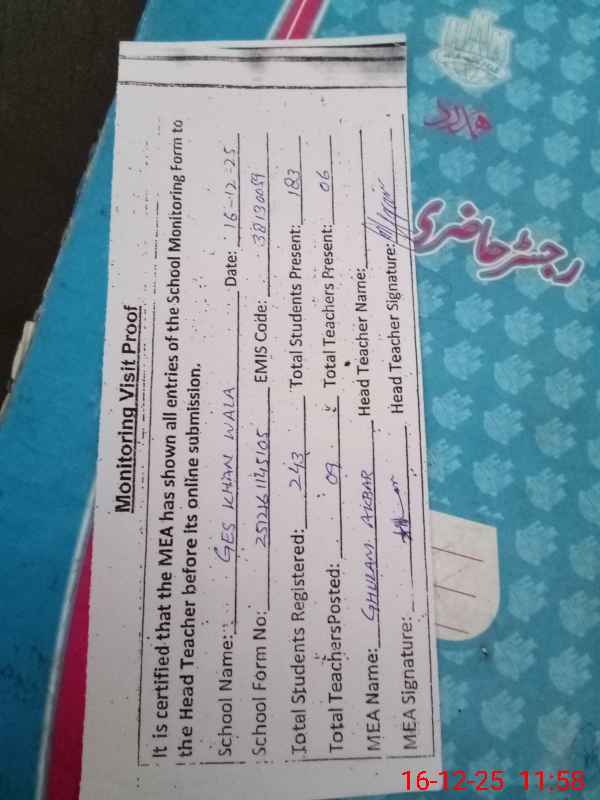 Monitoring Visit Proof
It is certified that the MEA has shown all entries of the School Monitoring Form to
the Head Teacher before its online submission.
School Name: GES KHAN WALA Date: 16-12-25
School Form No: EMIS Code: 38130059
Total Students Registered: 243 Total Students Present: 183
Total TeachersPosted: 09 Total Teachers Present: 06
MEA Name: GHULAM AKBAR Head Teacher Name:
MEA Signature: Head Teacher Signature:
ھمدرد
رجسٹر حاضری
16-12-25 11:58